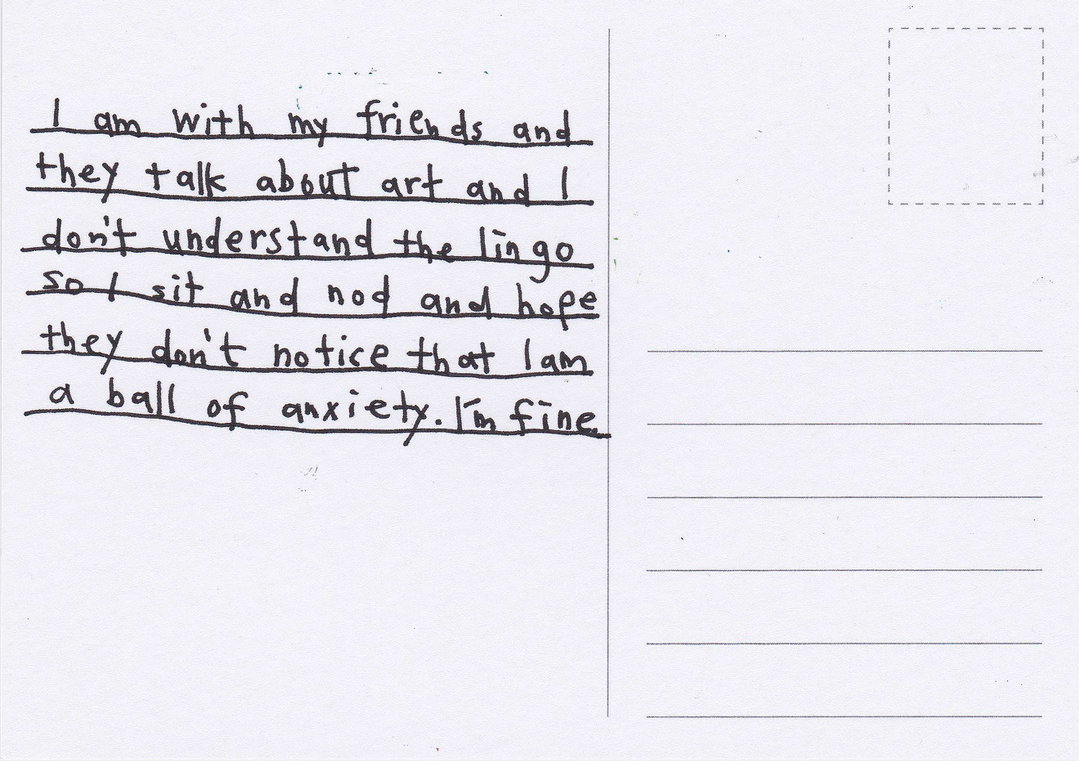 I am with my friends and
they talk about art and I
don't understand the lingo
so I sit and nod and hope
they don't notice that I am
a ball of anxiety. I'm fine.